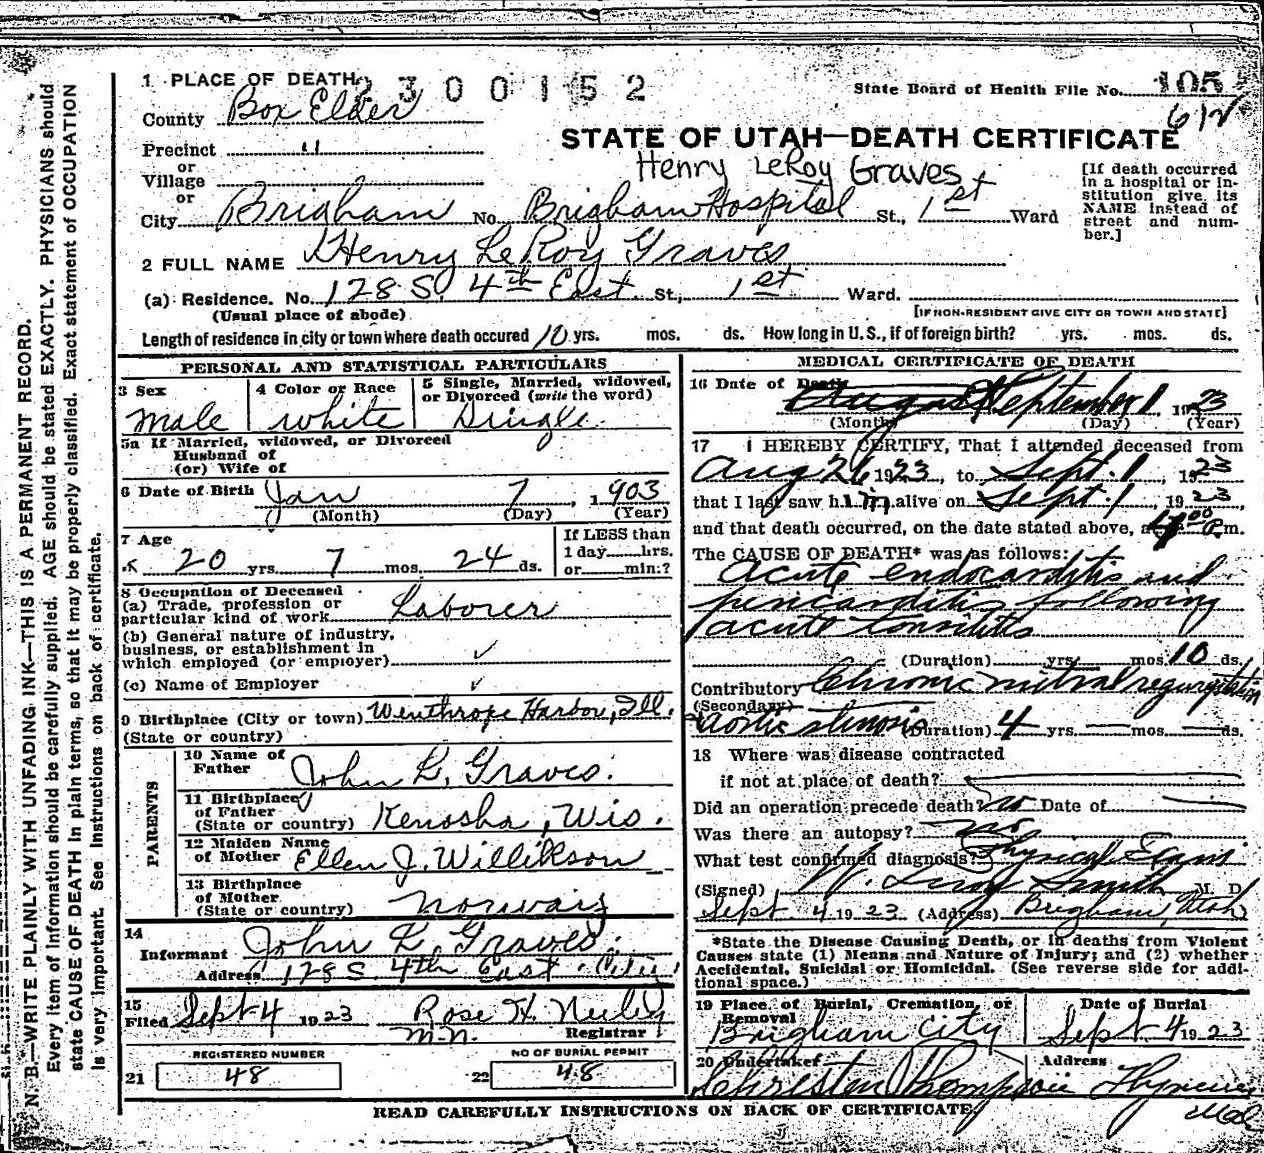 1 PLACE OF DEATH
2300152
State Board of Health File No. 105
County Box Elder
STATE OF UTAH—DEATH CERTIFICATE
Precinct "
Henry LeRoy Graves
or
Village
or
City Brigham No. Brigham Hospital St., 1st Ward
[If death occurred in a hospital or institution give its NAME instead of street and number.]
2 FULL NAME Henry LeRoy Graves
(a) Residence. No. 128 S. 4th East St., 1st Ward.
(Usual place of abode)
[IF NON-RESIDENT GIVE CITY OR TOWN AND STATE]
Length of residence in city or town where death occured 10 yrs. mos. ds. How long in U. S., if of foreign birth? yrs. mos. ds.
PERSONAL AND STATISTICAL PARTICULARS
3 Sex Male
4 Color or Race white
5 Single, Married, widowed, or Divorced (write the word) Single
5a If Married, widowed, or Divorced
Husband of
(or) Wife of
6 Date of Birth Jan 7, 1903
(Month) (Day) (Year)
7 Age 20 yrs. 7 mos. 24 ds.
If LESS than
1 day hrs.
or min.?
8 Occupation of Deceased
(a) Trade, profession or
particular kind of work Laborer
(b) General nature of industry,
business, or establishment in
which employed (or employer) ✓
(c) Name of Employer ✓
9 Birthplace (City or town) Wenthrope Harbor, Ill.
(State or country)
PARENTS
10 Name of Father John L. Graves.
11 Birthplace of Father
(State or country) Kenosha, Wis.
12 Maiden Name of Mother Ellen J. Willikson
13 Birthplace of Mother
(State or country) Norway
14
Informant John L. Graves.
Address 128 S 4th East. City.
15
Filed Sept 4 1923 Rose H. Neeley
M.N. Registrar
REGISTERED NUMBER
21 48
NO OF BURIAL PERMIT
22 48
MEDICAL CERTIFICATE OF DEATH
16 Date of Death
August September 1 1923
(Month) (Day) (Year)
17 I HEREBY CERTIFY, That I attended deceased from
Aug 26 1923, to Sept. 1, 1923
that I last saw him alive on Sept. 1, 1923,
and that death occurred, on the date stated above, at 4 00 P.m.
The CAUSE OF DEATH* was as follows:
acute endocarditis and
pericarditis following
acute tonsilitis
(Duration) yrs. mos. 10 ds.
Contributory Chronic mitral regurgitation
(Secondary)
Aortic stenosis (Duration) 4 yrs. — mos. — ds.
18 Where was disease contracted
if not at place of death?
Did an operation precede death? no Date of
Was there an autopsy? no
What test confirmed diagnosis? Physical Exam
(Signed) W. Leroy Smith M. D
Sept 4 1923 (Address) Brigham, Utah
*State the Disease Causing Death, or in deaths from Violent
Causes state (1) Means and Nature of Injury; and (2) whether
Accidental, Suicidal or Homicidal. (See reverse side for additional space.)
19 Place of Burial, Cremation, or Removal
Brigham City
Date of Burial
Sept 4 1923
20 Undertaker
Christen Thompson
Address
READ CAREFULLY INSTRUCTIONS ON BACK OF CERTIFICATE
N. B.—WRITE PLAINLY WITH UNFADING INK—THIS IS A PERMANENT RECORD.
Every item of information should be carefully supplied. AGE should be stated EXACTLY. PHYSICIANS should
state CAUSE OF DEATH in plain terms, so that it may be properly classified. Exact statement of OCCUPATION
is very important. See instructions on back of certificate.